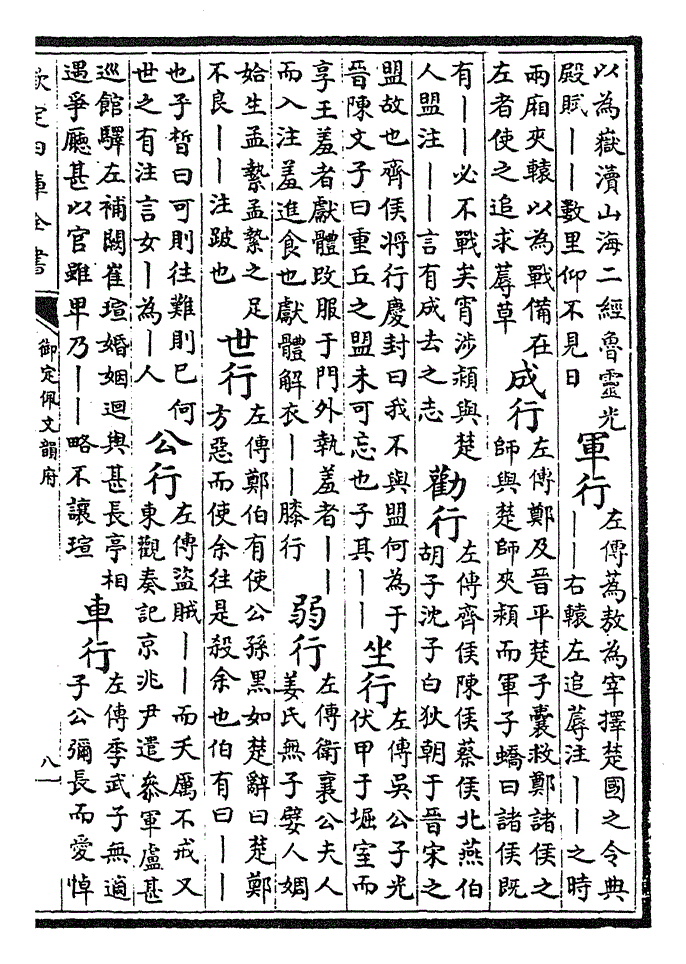 以為嶽瀆山海二經魯靈光
殿賦丨丨數里仰不見日
軍行
左傳蒍敖為宰擇楚國之令典
丨丨右轅左追蓐注丨丨之時
兩廂夾轅以為戰備在
左者使之追求蓐草
成行
左傳鄭及晉平楚子囊救鄭諸侯之
師與楚師夾潁而軍子蟜曰諸侯既
有丨丨必不戰矣宵涉潁與楚
人盟注丨丨言有成去之志
勸行
左傳齊侯陳侯蔡侯北燕伯
胡子沈子白狄朝于晉宋之
盟故也齊侯將行慶封曰我不與盟何為于
晉陳文子曰重丘之盟未可忘也子其丨丨
坐行
左傳吳公子光
伏甲于堀室而
享王羞者獻體改服于門外執羞者丨丨
而入注羞進食也獻體解衣丨丨膝行
弱行
左傳衛襄公夫人
姜氏無子嬖人婤
姶生孟縶孟縶之足
不良丨丨注跛也
世行
左傳鄭伯有使公孫黑如楚辭曰楚鄭
方惡而使余往是殺余也伯有曰丨丨
也子晳曰可則往難則已何
世之有注言女丨為丨人
公行
左傳盜賊丨丨而夭厲不戒又
東觀奏記京兆尹遣參軍盧甚
巡館驛左補闕崔瑄婚姻迴與甚長亭相
遇爭廳甚以官雖卑乃丨丨略不讓瑄
車行
左傳季武子無適
子公彌長而愛悼
欽定四庫全書
御定佩文韻府